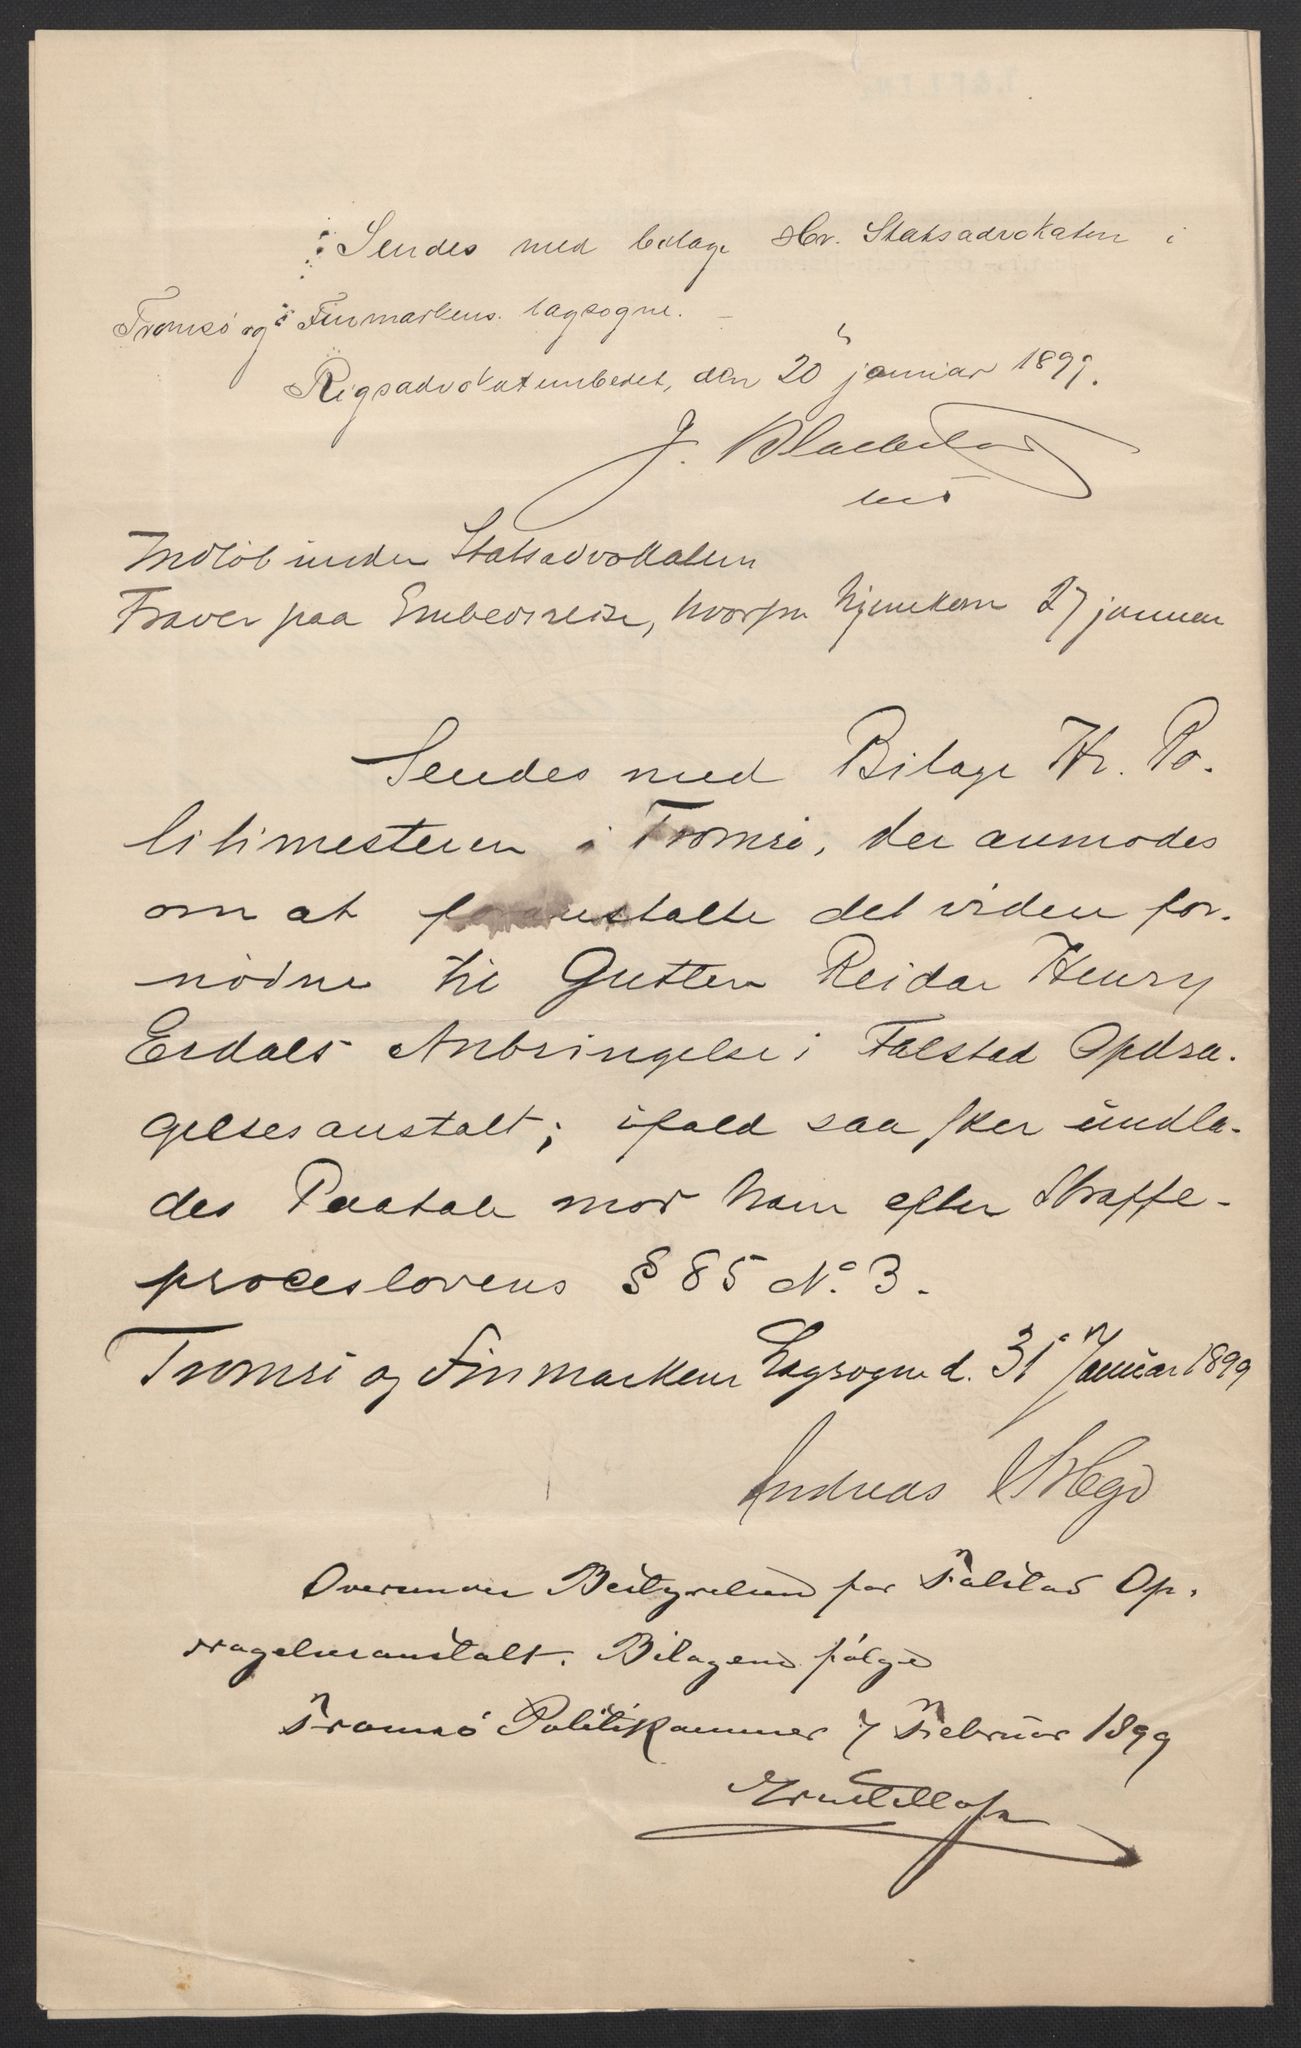 Sendes med bilage Hr. Statsadvokaten i
Tromsö og Finmarkens lagsogne.
Rigsadvokatembedet, den 20 januar 1899.
J.
Indløb under Statsadvokatens
Fravær paa Embedsreise, hvorfra hjemkom 27 januar
Sendes med Bilage Hr. Po-
litimesteren i Tromsö, der anmodes
om at foranstalte det videre for-
nödne til Gutten Reidar Henry
Erdals Anbringelse i Falstad Opdra-
gelsesanstalt; ifald saa sker undla-
des Paatale mod ham efter Straffe-
proceslovens § 85 No. 3.
Tromsö og Finmarkens Lagsogne d. 31 Januar 1899
Andreas
Oversendes Bestyrelsen for Falstad Op-
dragelsesanstalt. Bilagene følge
Tromsö Politikammer 7 Februar 1899